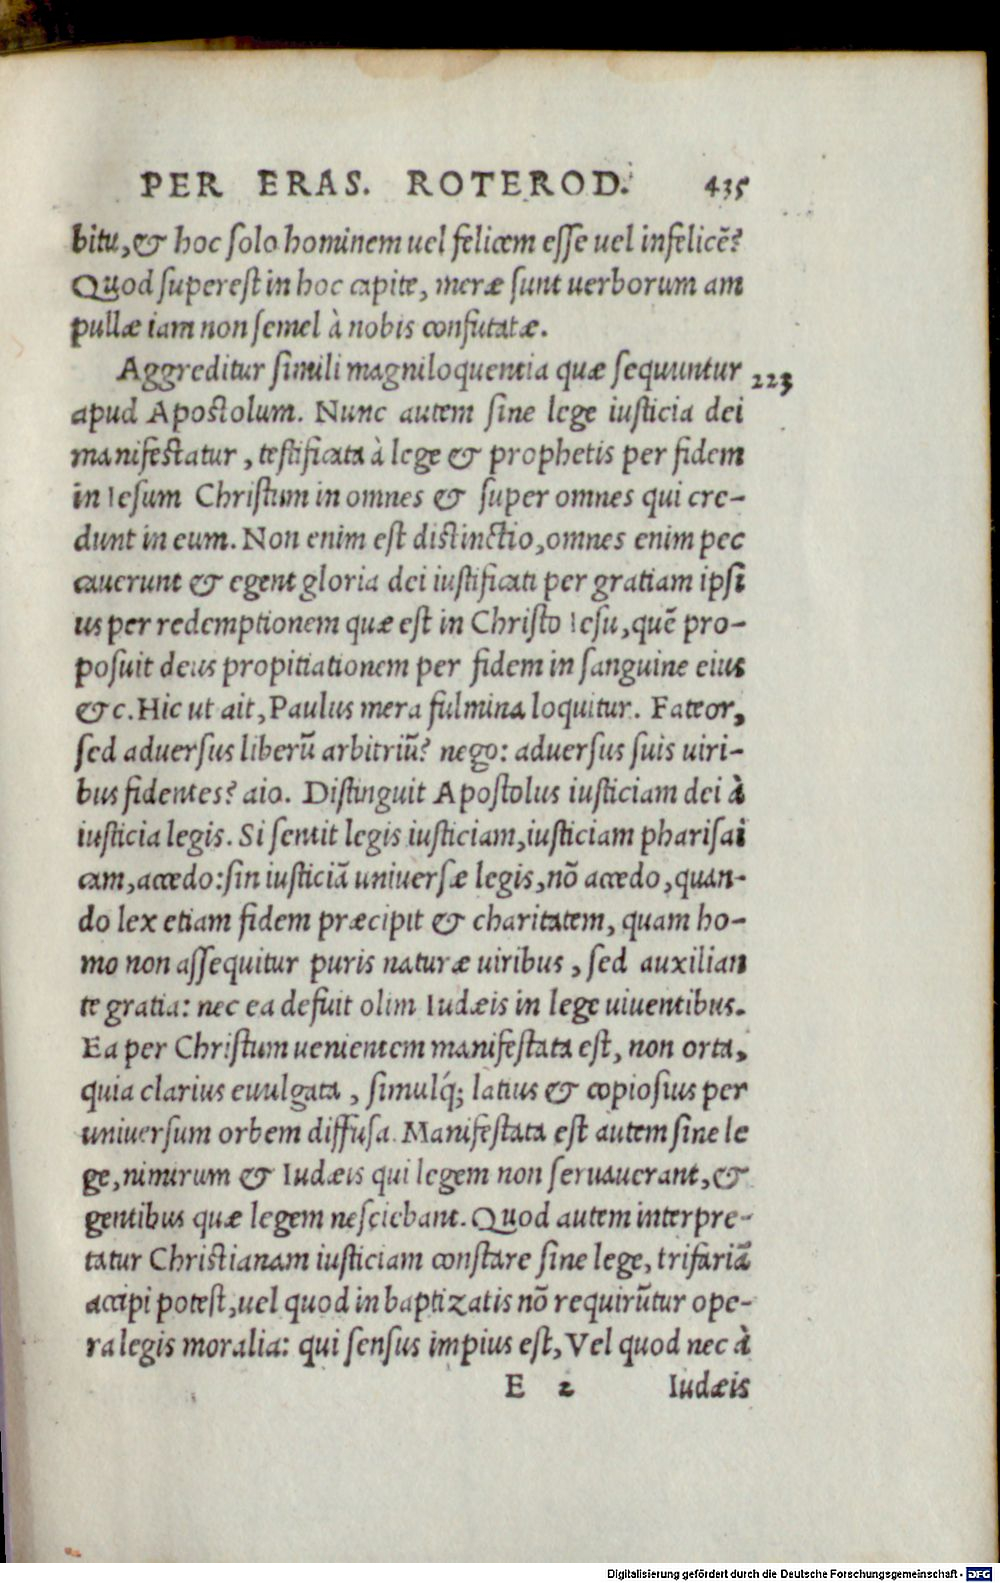 PER ERAS. ROTEROD. 435
bitu, & hoc solo hominem uel felicem esse uel infelicē?
Quod superest in hoc capite, meræ sunt uerborum am
pullæ iam non semel à nobis confutatæ.
Aggreditur simili magniloquentia quæ sequuntur 223
apud Apostolum. Nunc autem sine lege iusticia dei
manifestatur, testificata à lege & prophetis per fidem
in Iesum Christum in omnes & super omnes qui cre-
dunt in eum. Non enim est distinctio, omnes enim pec
cauerunt & egent gloria dei iustificati per gratiam ipsi
us per redemptionem quæ est in Christo Iesu, quē pro-
posuit deus propitiationem per fidem in sanguine eius
&c. Hic ut ait, Paulus mera fulmina loquitur. Fateor,
sed aduersus liberū arbitriū? nego: aduersus suis uiri-
bus fidentes? aio. Distinguit Apostolus iusticiam dei à
iusticia legis. Si sentit legis iusticiam, iusticiam pharisai
cam, accedo: sin iusticiā uniuersæ legis, nō accedo, quan-
do lex etiam fidem præcipit & charitatem, quam ho-
mo non assequitur puris naturæ uiribus, sed auxilian
te gratia: nec ea defuit olim Iudæis in lege uiuentibus.
Ea per Christum uenientem manifestata est, non orta,
quia clarius euulgata, simulq́; latius & copiosius per
uniuersum orbem diffusa. Manifestata est autem sine le
ge, nimirum & Iudæis qui legem non seruauerant, &
gentibus quæ legem nesciebant. Quod autem interpre-
tatur Christianam iusticiam constare sine lege, trifariā
accipi potest, uel quod in baptizatis nō requirūtur ope-
ra legis moralia: qui sensus impius est, Vel quod nec à
E 2 Iudæis
Digitalisierung gefördert durch die Deutsche Forschungsgemeinschaft - DFG